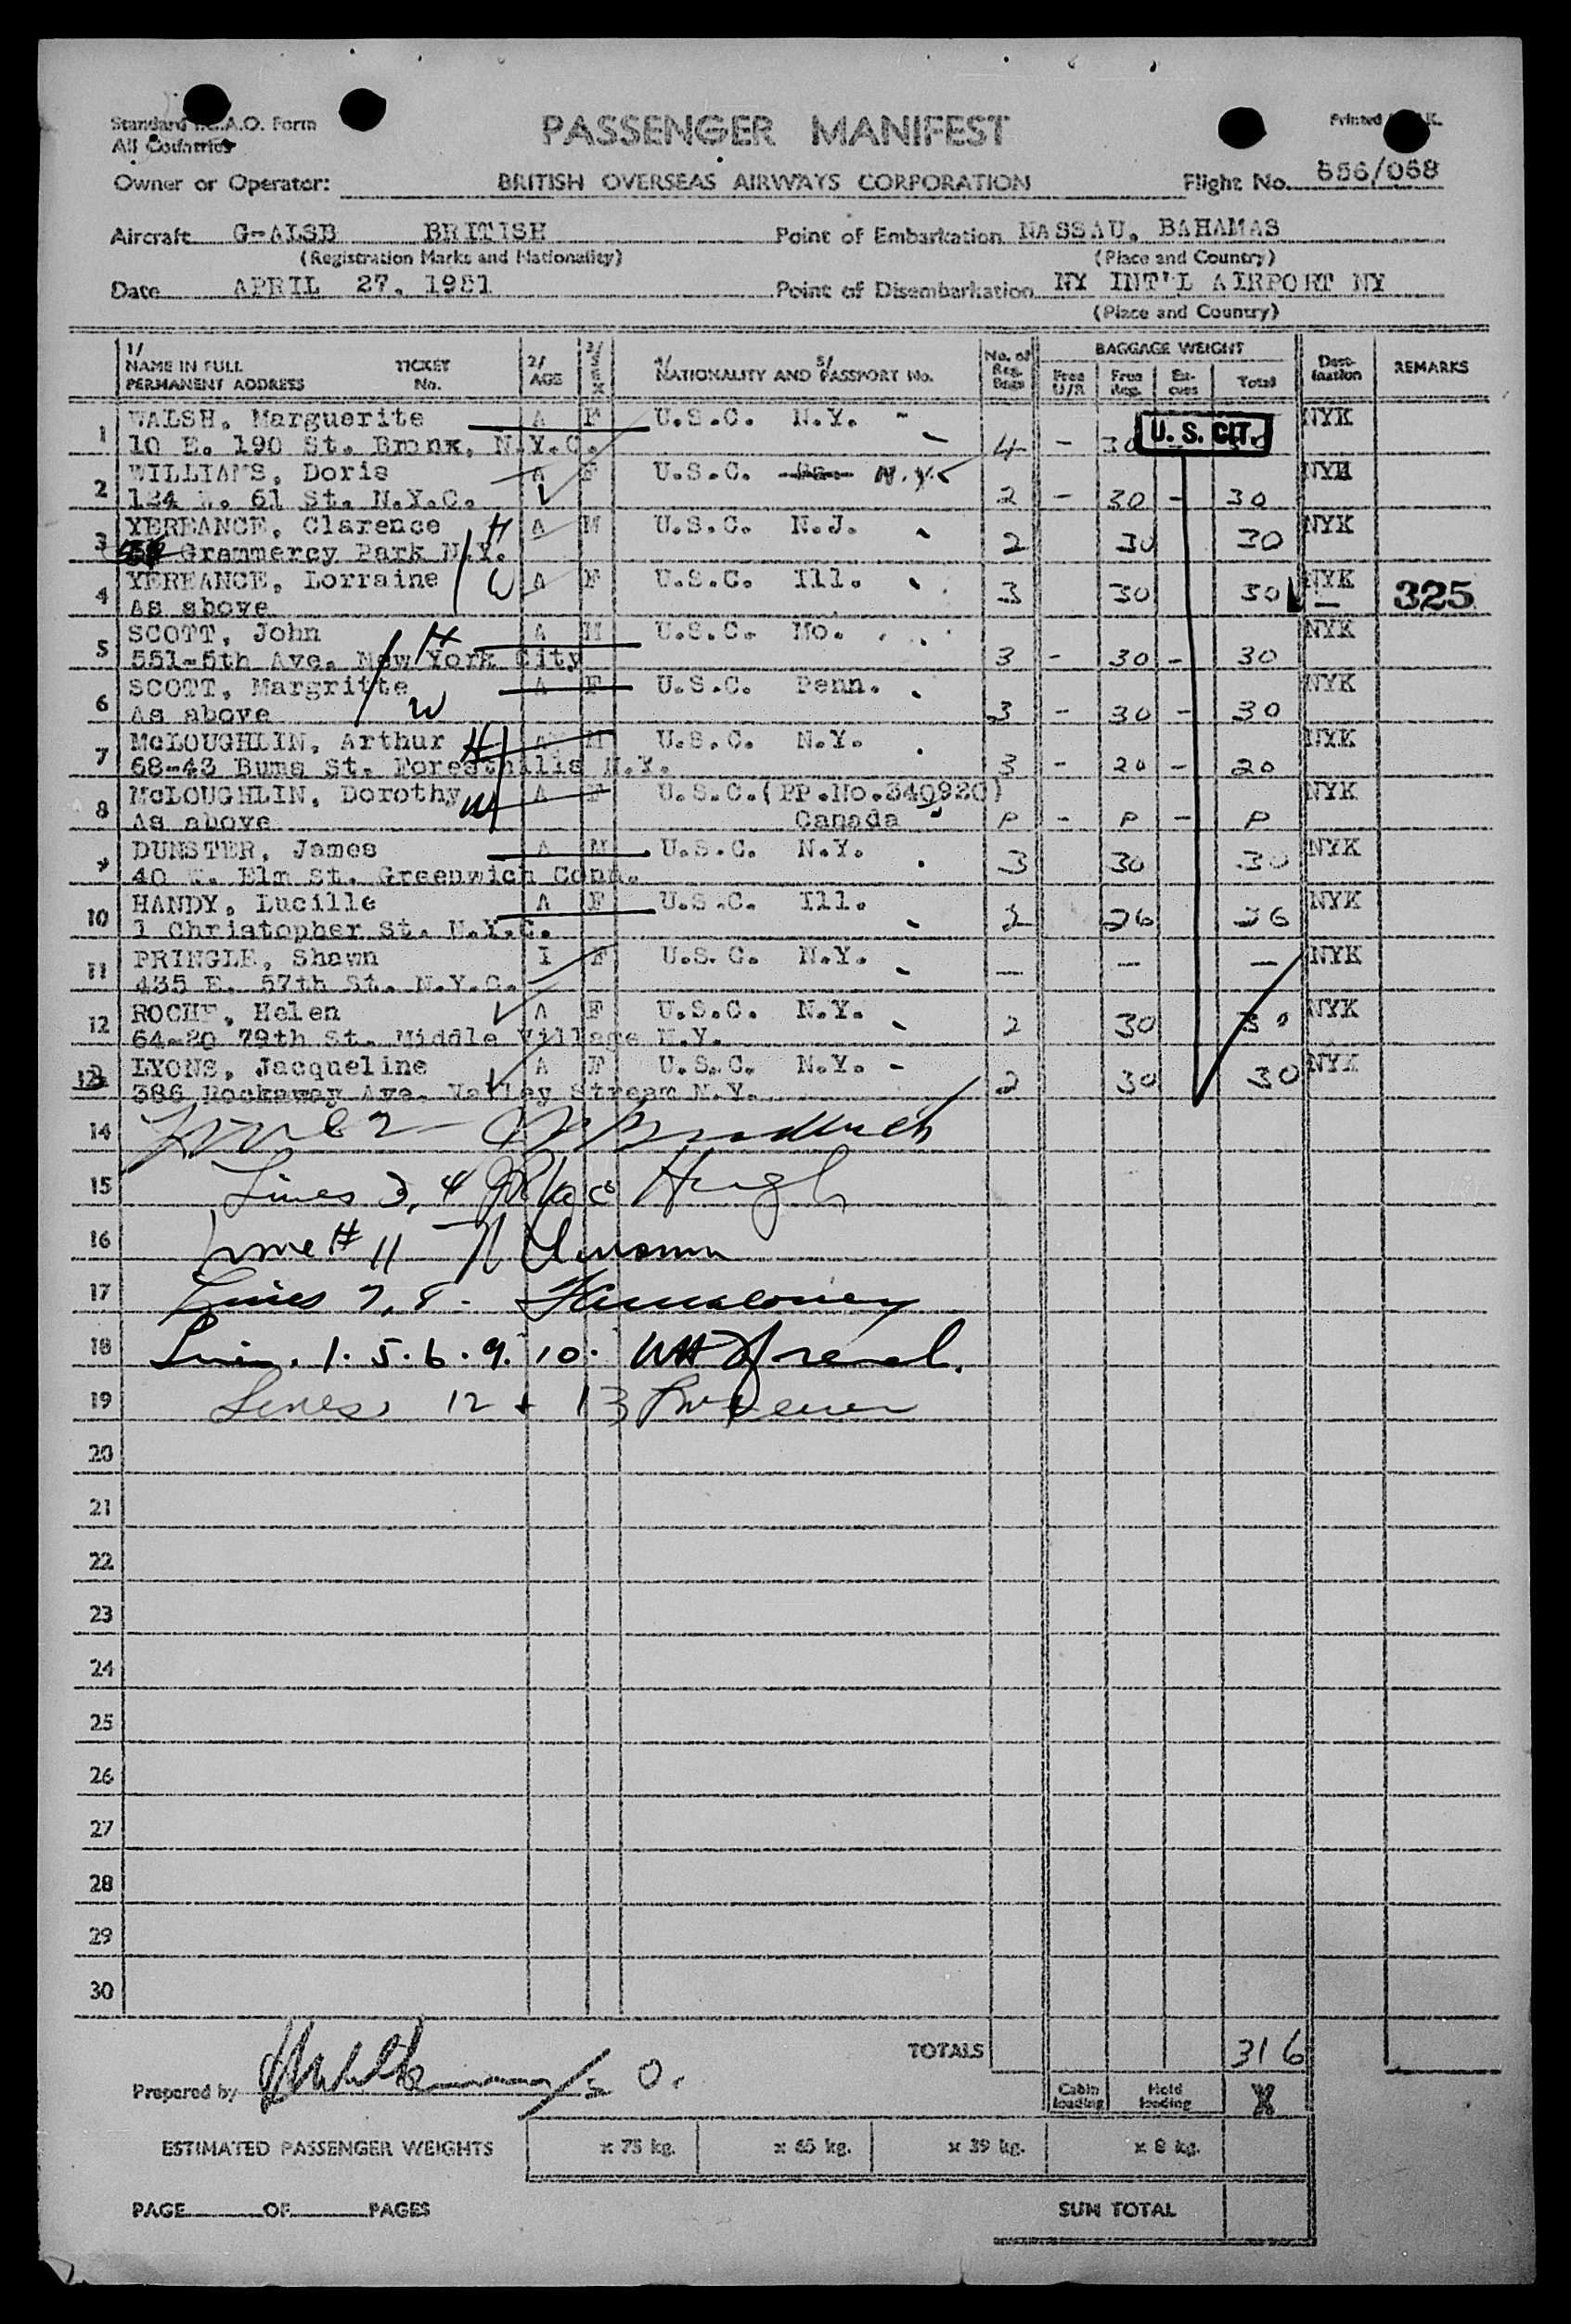 Standard I.C.A.O. Form
All Countries
PASSENGER MANIFEST
Printed
Owner or Operator: BRITISH OVERSEAS AIRWAYS CORPORATION Flight No. 556/058
Aircraft G-ALSB BRITISH Point of Embarkation NASSAU, BAHAMAS
(Registration Marks and Nationality) (Place and Country)
Date APRIL 27, 1951 Point of Disembarkation NY INT'L AIRPORT NY
(Place and Country)
1/ NAME IN FULL PERMANENT ADDRESS TICKET No. 2/ AGE 3/ SEX 4/ NATIONALITY AND 5/ PASSPORT No. No. of Reg. Bags BAGGAGE WEIGHT Free U/R Free Reg. Ex-cess Total Dest-ination REMARKS
1 WALSH, Marguerite A F U.S.C. N.Y. NYK
10 E. 190 St. Bronx, N.Y.C. 4 - 30 U. S. CIT.
2 WILLIAMS, Doris A F U.S.C. N.Y. NYK
124 E. 61 St. N.Y.C. 2 - 30 - 30
3 YEREANCE, Clarence H A M U.S.C. N.J. 2 30 30 NYK
Grammercy Park N.Y.
4 YEREANCE, Lorraine W A F U.S.C. Ill. 3 30 30 NYK 325
As above
5 SCOTT, John H A M U.S.C. Mo. NYK
551-5th Ave. New York City 3 - 30 - 30
6 SCOTT, Margritte A F U.S.C. Penn. NYK
As above W 3 - 30 - 30
7 McLOUGHLIN, Arthur H A M U.S.C. N.Y. NYK
68-43 Burns St. Foresthills N.Y. 3 - 20 - 20
8 McLOUGHLIN, Dorothy W A F U.S.C.(PP.No.340920) NYK
As above Canada P - P - P
DUNSTER, James A M U.S.C. N.Y. 3 30 30 NYK
40 W. Elm St. Greenwich Conn.
10 HANDY, Lucille A F U.S.C. Ill. 2 26 26 NYK
1 Christopher St. N.Y.C.
11 PRINGLE, Shawn I F U.S.C. N.Y. — — — NYK
435 E. 57th St. N.Y.C.
12 ROCHE, Helen A F U.S.C. N.Y. 2 30 30 NYK
64-20 79th St. Middle Village N.Y.
13 LYONS, Jacqueline A F U.S.C. N.Y. 2 30 30 NYK
386 Rockaway Ave. Valley Stream N.Y.
14
15 Lines 3, 4
16 Line # 11
17 Lines 7, 8 -
18 1. 5. 6. 9. 10.
19 Lines 12 + 13
20
21
22
23
24
25
26
27
28
29
30
TOTALS 316
Prepared by
Cabin loading Hold loading X
ESTIMATED PASSENGER WEIGHTS x 75 kg. x 65 kg. x 39 kg. x 8 kg.
PAGE OF PAGES SUM TOTAL